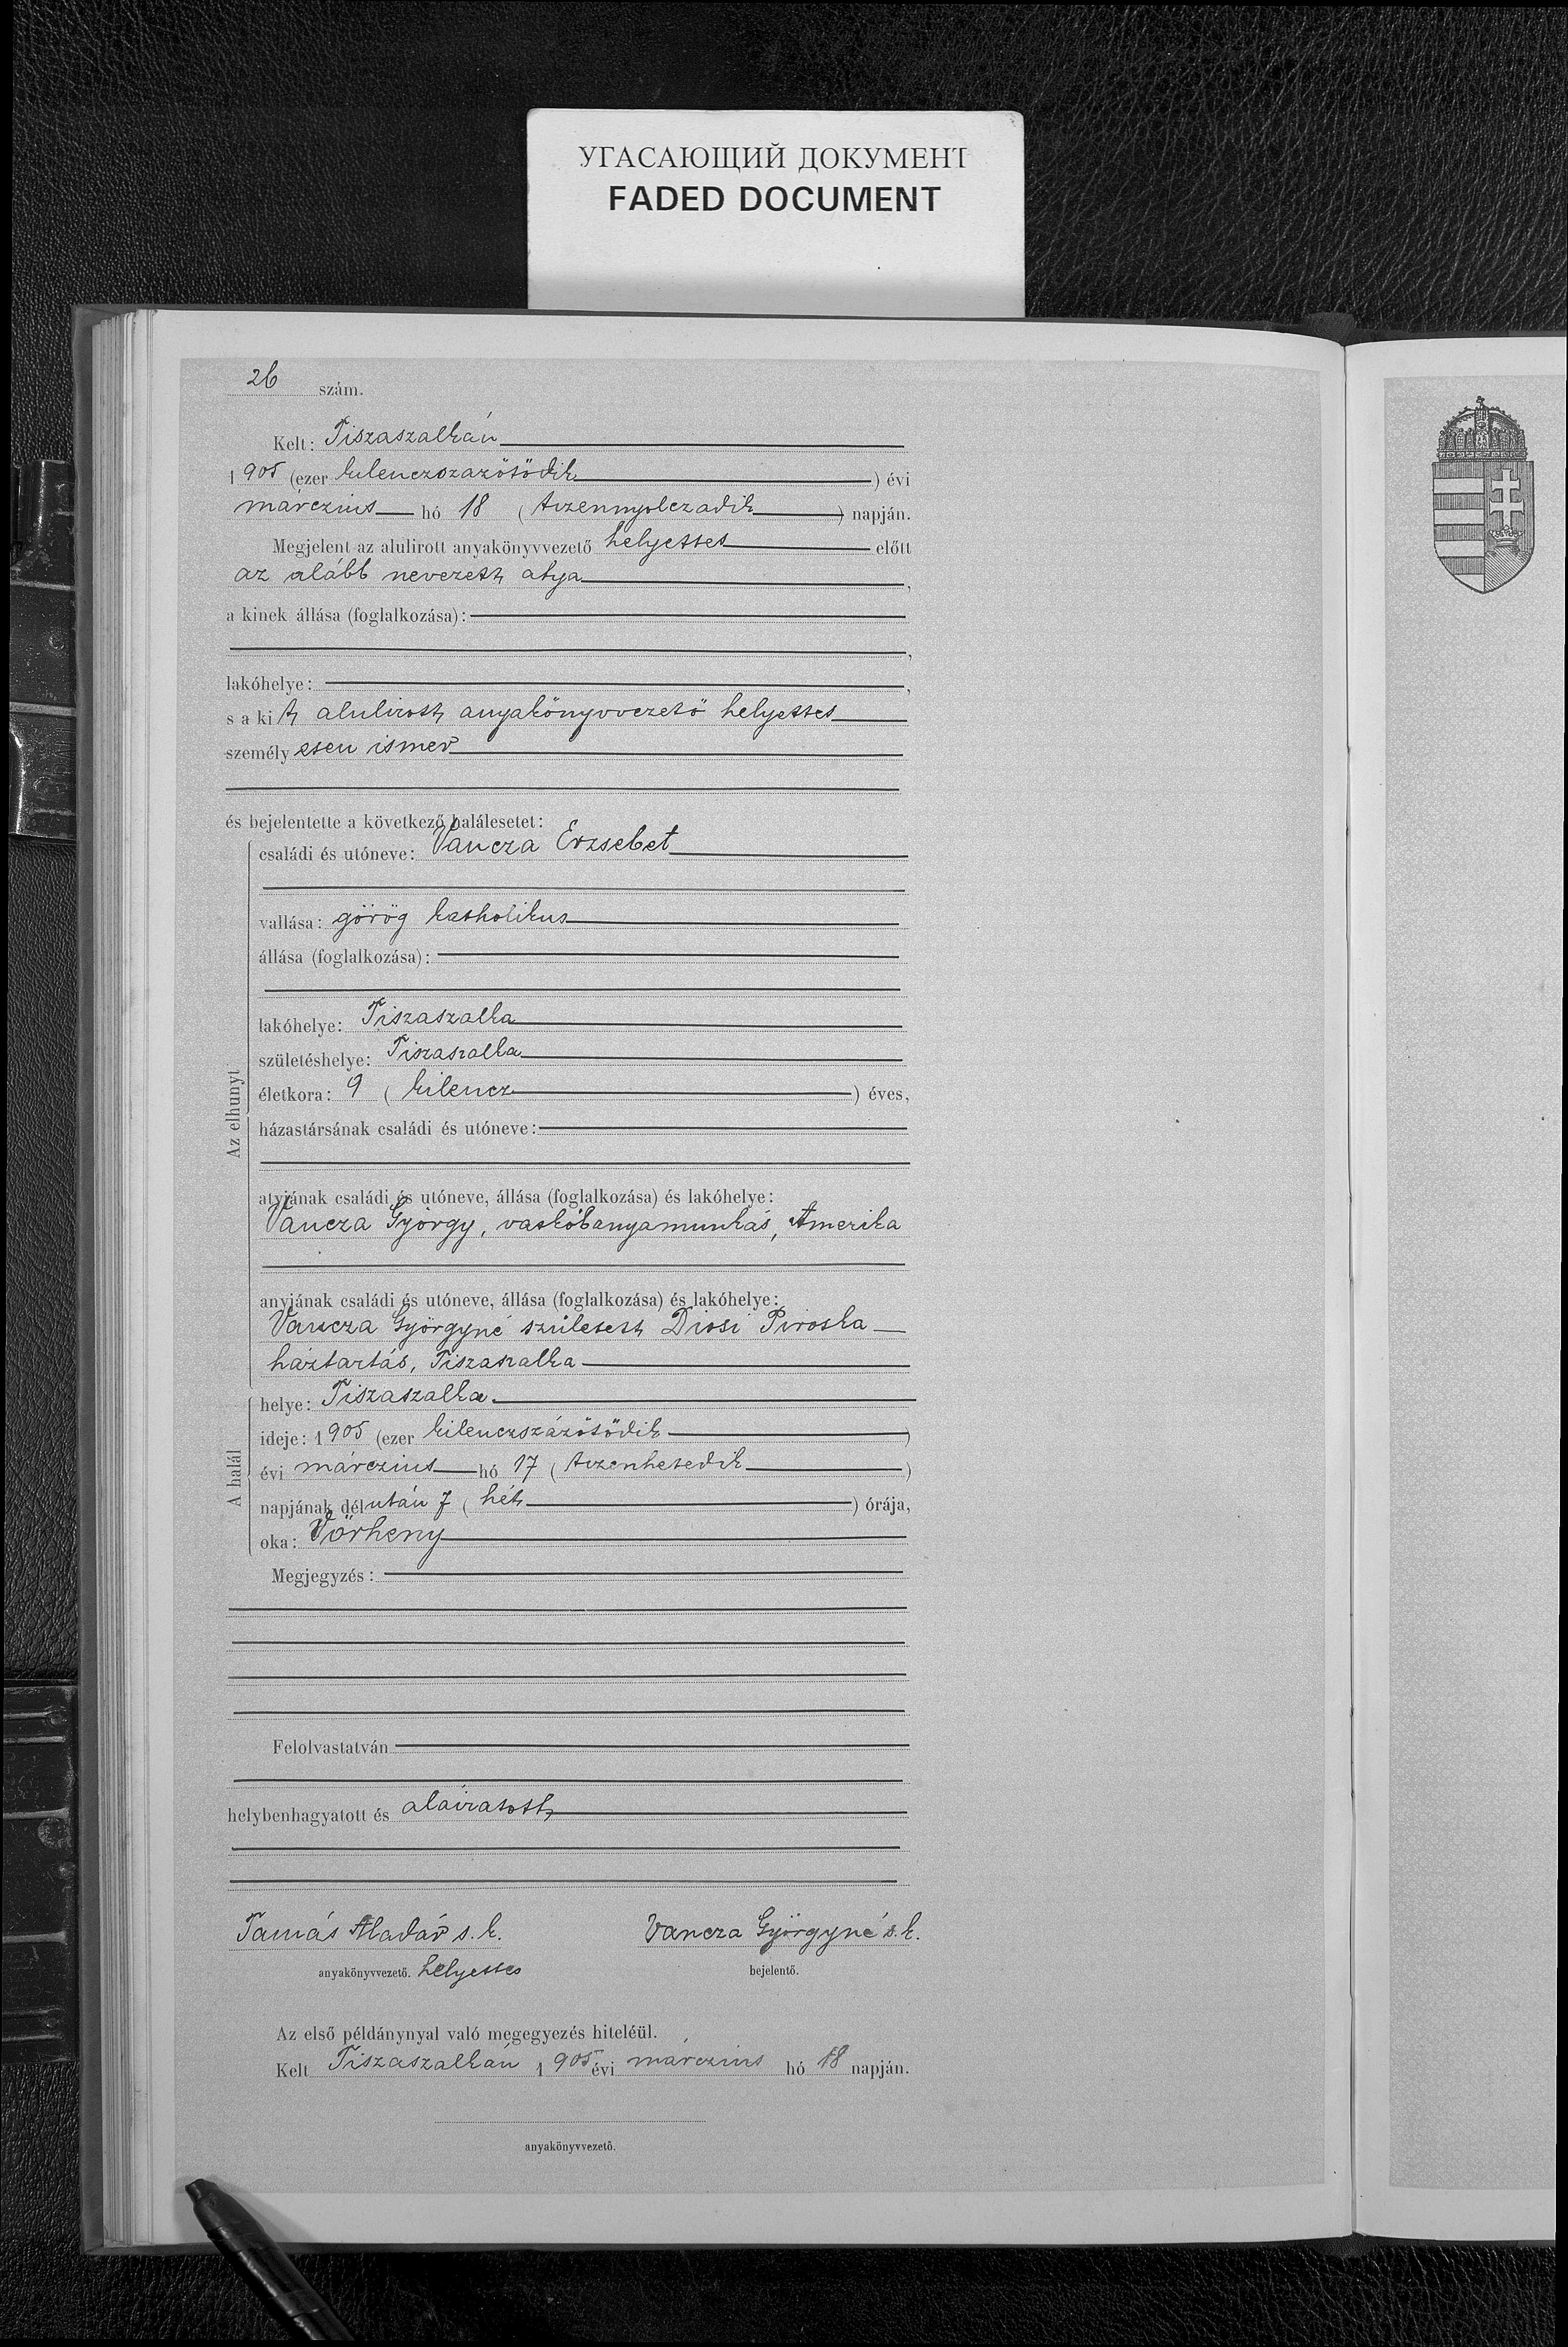 УГАСАЮЩИЙ ДОКУМЕНТ
FADED DOCUMENT
26 szám.
Kelt: Tiszaszalkán
1905 (ezer kilenczszazötödik) évi
márczius hó 18 (tizennyolczadik) napján.
Megjelent az alulirott anyakönyvvezető helyettes előtt
az alább nevezett atya,
a kinek állása (foglalkozása):
,
lakóhelye: ,
s a kit alulirott anyakönyvvezető helyettes
személyesen ismer
és bejelentette a következő halálesetet:
Az elhunyt
családi és utóneve: Vancza Erzsebet
vallása: görög katholikus
állása (foglalkozása):
lakóhelye: Tiszaszalka
születéshelye: Tiszaszalka
életkora: 9 (kilencz) éves,
házastársának családi és utóneve:
atyjának családi és utóneve, állása (foglalkozása) és lakóhelye:
Vancza György, vaskőbanyamunkás, Amerika
anyjának családi és utóneve, állása (foglalkozása) és lakóhelye:
Vancza Györgyné született Diosi Piroska
háztartás, Tiszaszalka
A halál
helye: Tiszaszalka
ideje: 1905 (ezer kilenczszázötödik)
évi márczius hó 17 (tizenhetedik)
napjának délután 7 (hét) órája,
oka: Vörheny
Megjegyzés:
Felolvastatván
helybenhagyatott és aláiratott
Tamás Aladár s. k. Vancza Györgyné s. k.
anyakönyvvezető. helyettes bejelentő.
Az első példánynyal való megegyezés hiteléül.
Kelt Tiszaszalkán 1905 évi márczius hó 18 napján.
anyakönyvvezető.